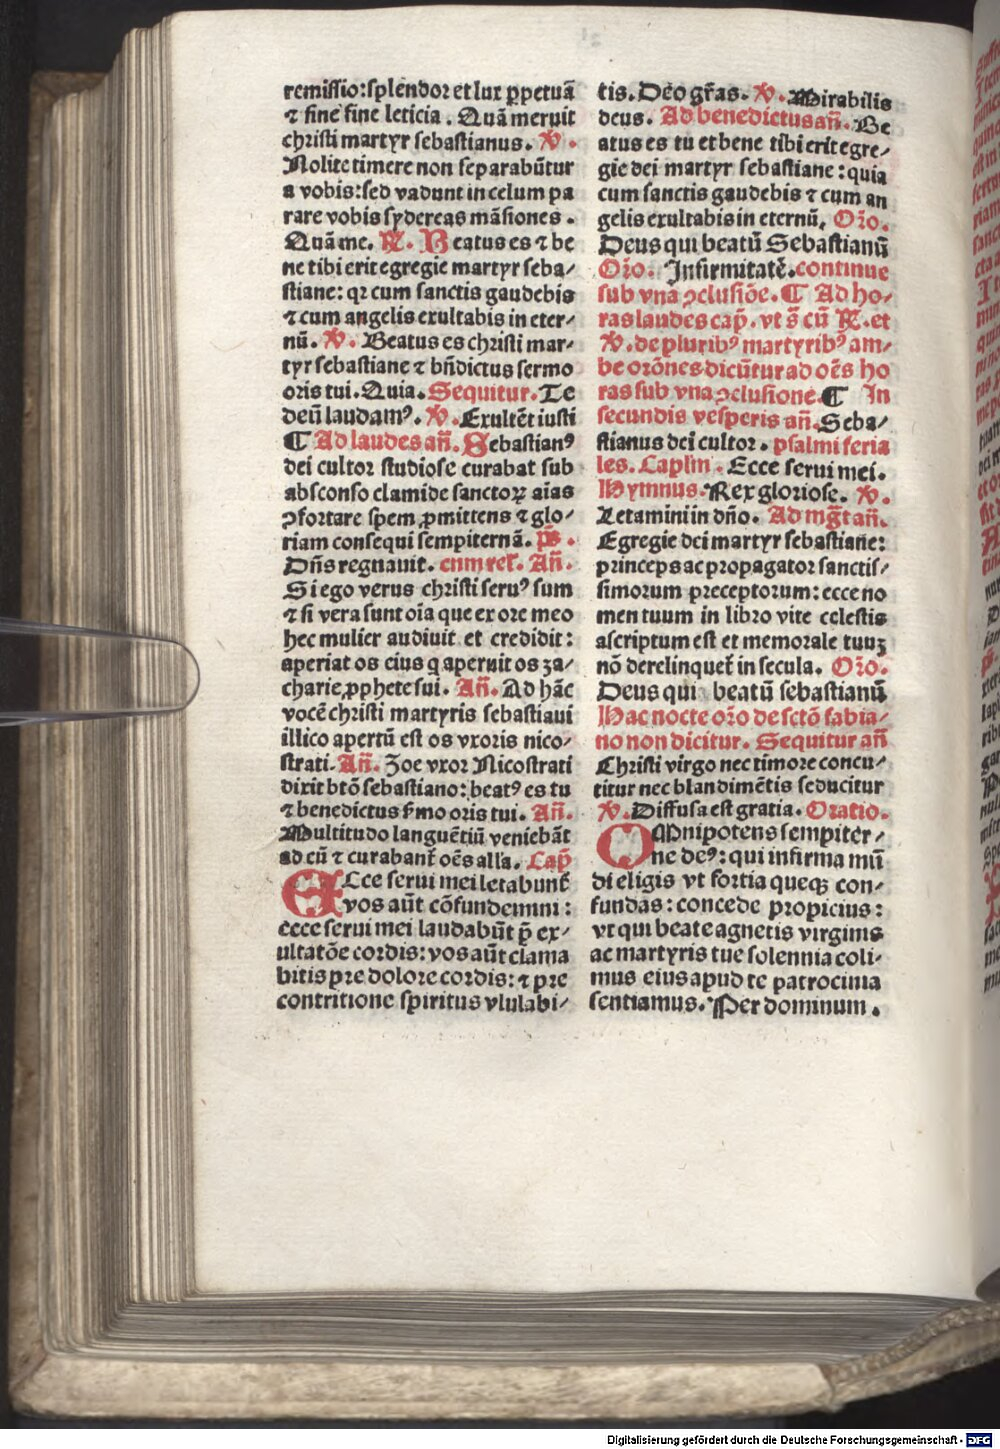 remissio:splendor et lux ꝑpetuā
⁊ sine fine leticia. Quā meruit
christi martyr sebastianus. V̷.
Nolite timere non separabūtur
a vobis:sed vadunt in celum pa
rare vobis sydereas māsiones.
Quā me. R̷. Beatus es ⁊ be
ne tibi erit egregie martyr seba/
stiane: qꝛ cum sanctis gaudebis
⁊ cum angelis exultabis in eter/
nū. V̷. Beatus es christi mar/
tyr sebastiane ⁊ bn̄dictus sermo
oris tui. Quia. Sequitur. Te
deū laudamꝰ. V̷. Exultēt iusti
¶ Ad laudes an̄. Sebastianꝰ
dei cultor studiose curabat sub
absconso clamide sanctoꝝ aīas
ꝯfortare spem ꝓmittens ⁊ glo/
riam consequi sempiternā. ps̄.
Dn̄s regnauit. cum rel'. An̄.
Si ego verus christi seruꝰ sum
⁊ si vera sunt oīa que ex ore meo
hec mulier audiuit et credidit:
aperiat os eius q aperuit os za/
charie ꝓphete sui. An̄. Ad hāc
vocē christi martyris sebastiaui
illico apertū est os vxoris nico/
strati. An̄. Zoe vxor Nicostrati
dixit btō sebastiano: beatꝰ es tu
⁊ benedictus s̄mo oris tui. An̄.
Multitudo languētiū veniebāt
ad eū ⁊ curabant᷑ oēs alla. Cap̄
ECce serui mei letabunt᷑
⁊ vos aūt cōfundemini:
ecce serui mei laudabūt p̄ ex/
ultatōe cordis: vos aūt clama
bitis pre dolore cordis: ⁊ pre
contritione spiritus vlulabi/
tis. Deo gr̄as. V̷. Mirabilis
deus. Ad benedictus an̄. Be
atus es tu et bene tibi erit egre/
gie dei martyr sebastiane: quia
cum sanctis gaudebis ⁊ cum an
gelis exultabis in eternū. Orō.
Deus qui beatū Sebastianū
Orō. Infirmitatē. continue
sub vna ꝯclusiōe. ¶ Ad ho/
ras laudes cap̄. vt s̄ cū R̷. et
V̷. de pluribꝰ martyribꝰ am/
be orōnes dicūtur ad oēs ho
ras sub vna ꝯclusione. ¶ In
secundis vesperis an̄. Seba/
stianus dei cultor. psalmi feria
les. Caplm̄. Ecce serui mei.
Hymnus. Rex gloriose. V̷.
Letamini in dn̄o. Ad mḡt an̄.
Egregie dei martyr sebastiane:
princeps ac propagator sanctis/
simorum preceptorum: ecce no
men tuum in libro vite celestis
ascriptum est et memorale tuuꝫ
nō derelinquet᷑ in secula. Orō.
Deus qui beatū sebastianū
Hac nocte orō de sctō fabia/
no non dicitur. Sequitur an̄
Christi virgo nec timore concu/
titur nec blandimētis seducitur
V̷. Diffusa est gratia. Oratio.
OMnipotens sempiter/
ne deꝰ: qui infirma mū
di eligis vt fortia queqꝫ con/
fundas: concede propicius:
vt qui beate agnetis virginis
ac martyris tue solennia coli/
mus eius apud te patrocinia
sentiamus. Per dominum.
Digitalisierung gefördert durch die Deutsche Forschungsgemeinschaft - DFG